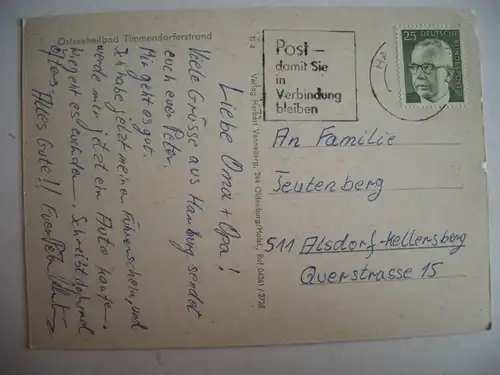 Ostseeheilbad Timmendorferstrand
Liebe Oma + Opa!
Viele Grüsse aus Hamburg sendet
euch euer Peter.
Mir geht es gut.
Ich habe jetzt meinen Führerschein, und
werde mir jetzt ein Auto kaufen.
Wie geht es euch denn. Schreibt doch mal
öfters.
Alles Gute!! Euer Peter
Verlag Herbert Venneberg, 244 Oldenburg/Holst., Ruf 04361 / 2726
Post –
damit Sie
in
Verbindung
bleiben
25 DEUTSCHE
BUNDESPOST
An Familie
Teutenberg
511 Alsdorf-Kellersberg
Querstrasse 15